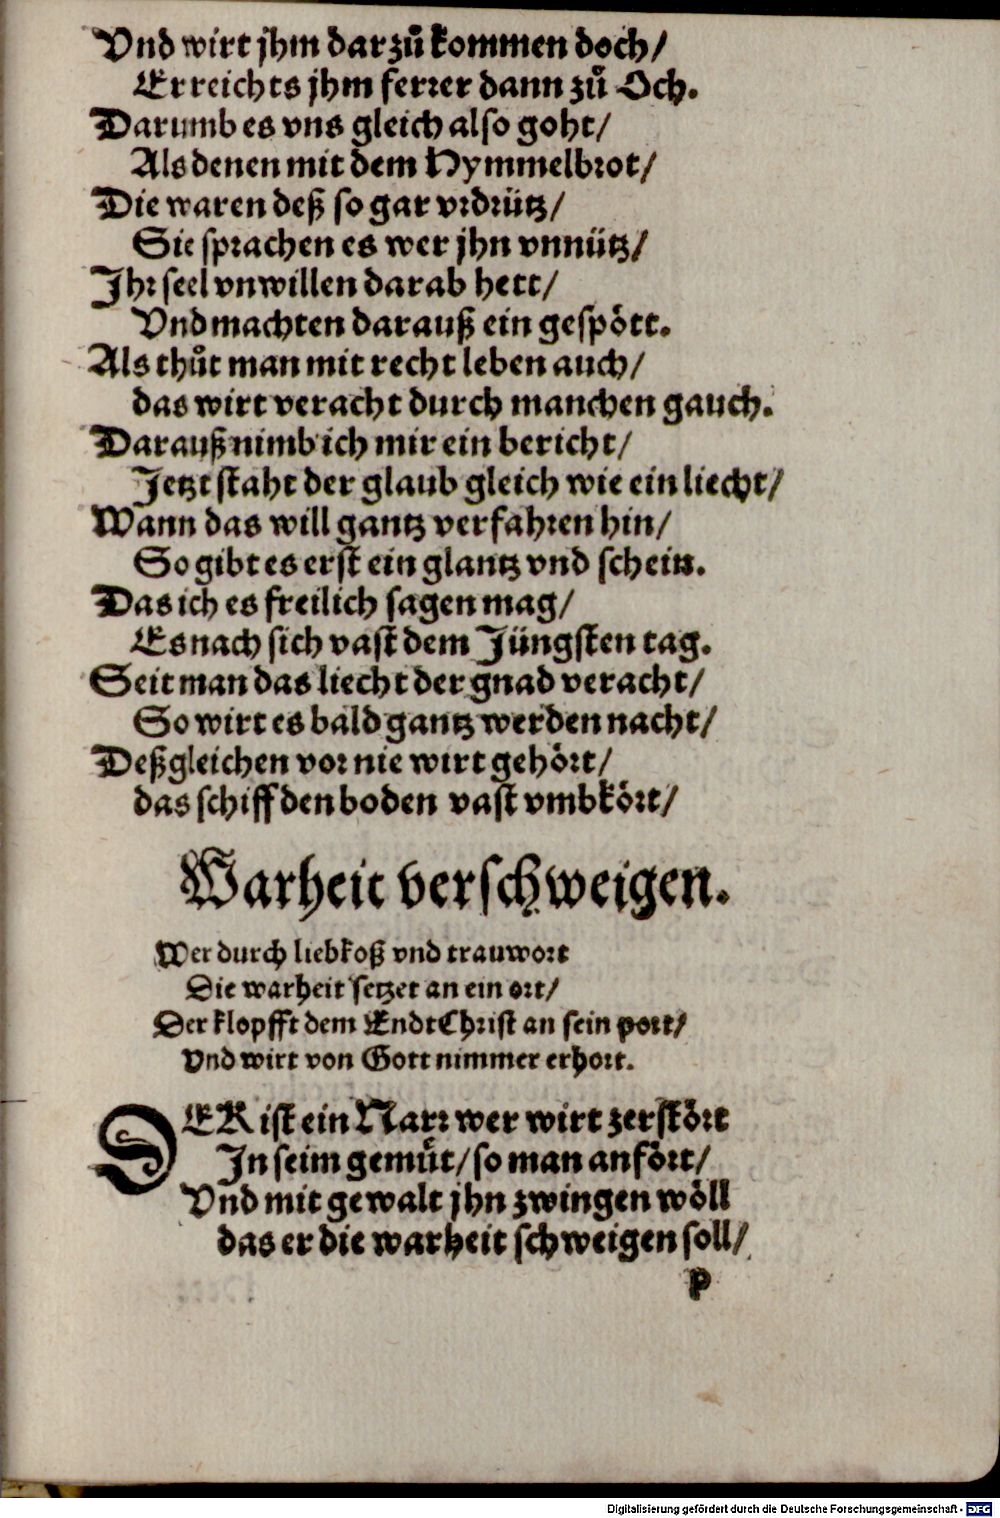 Vnd wirt jhm darzuͦ kommen doch/
Er reichts jhm ferrer dann zuͦ Och.
Darumb es vns gleich also goht/
Als denen mit dem Hymmelbrot/
Die waren deß so gar vrdrütz/
Sie sprachen es wer jhn vnnütz/
Ihr seel vnwillen darab hett/
Vnd machten darauß ein gespött.
Als thuͦt man mit recht leben auch/
das wirt veracht durch manchen gauch.
Darauß nimb ich mir ein bericht/
Jetzt staht der glaub gleich wie ein liecht/
Wann das will gantz verfahren hin/
So gibt es erst ein glantz vnd schein.
Das ich es freilich sagen mag/
Es nach sich vast dem Jüngsten tag.
Seit man das liecht der gnad veracht/
So wirt es bald gantz werden nacht/
Deßgleichen vor nie wirt gehört/
das schiff den boden vast vmbkört/
Warheit verschweigen.
Wer durch liebkoß vnd trauwort
Die warheit setzet an ein ort/
Der klopfft dem EndtChrist an sein port/
Vnd wirt von Gott nimmer erhort.
DER ist ein Narr wer wirt zerstört
In seim gemuͤt/ so man anfört/
Vnd mit gewalt jhn zwingen wöll
das er die warheit schweigen soll/
P
Digitalisierung gefördert durch die Deutsche Forschungsgemeinschaft - DFG